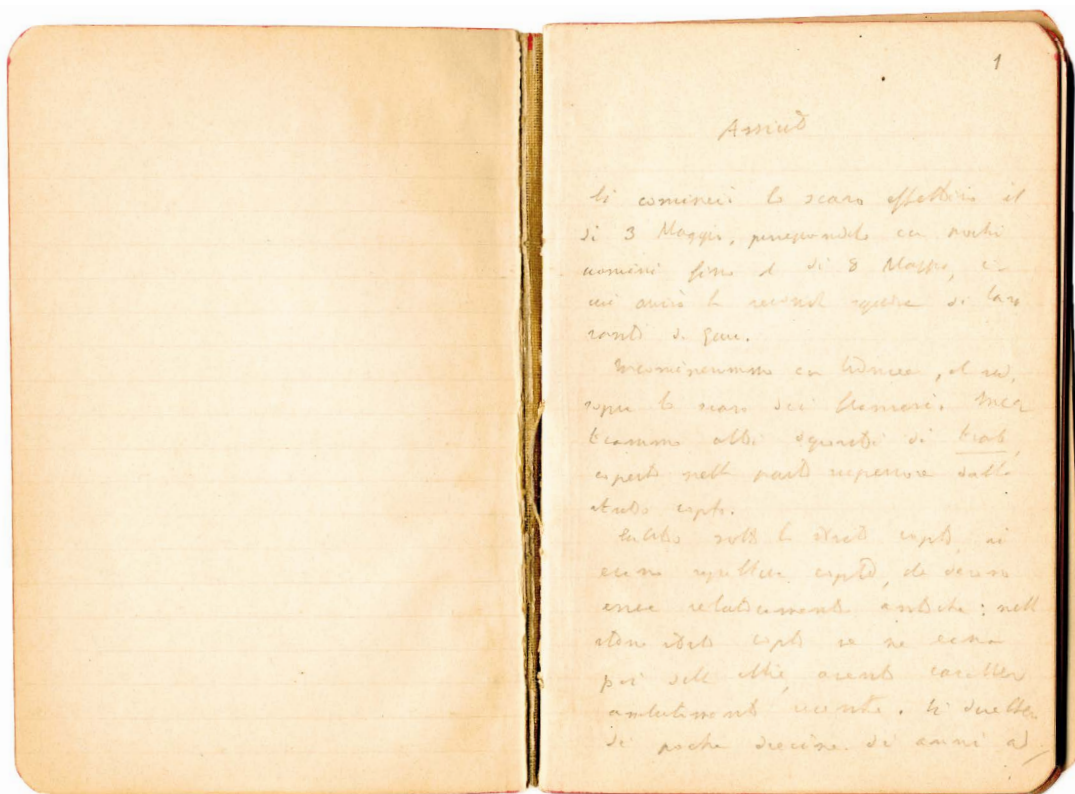 1
Assiut
Si cominciò lo scavo effettivo il
dì 3 Maggio, proseguendolo con pochi
uomini fino al dì 8 Maggio, in
cui arrivò la seconda squadra di lavo
ranti di Gau.
Incominciammo con, al sud,
sopra lo scavo dei. Incon
trammo alti di
coperti nella parte superiore dallo
strato copto.
Subito sotto lo strato copto, vi
erano copte, che devono
essere relativamente antiche: nello
stesso strato copto ve ne erano
poi delle altre, aventi carattere
assolutamente recente. Si
di poche decine di anni ad